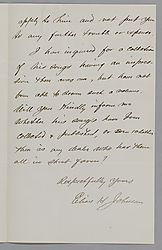 apply to him and not put you
to any further trouble or expense.
I have inquired for a collection
of his songs having an impres-
sion there was one, but have not
been able to such a volume.
Will you kindly inform me
whether his songs have been
collected & published or
there is any who has them
all in form?
Respectfully yours
Edwin H. Johnson